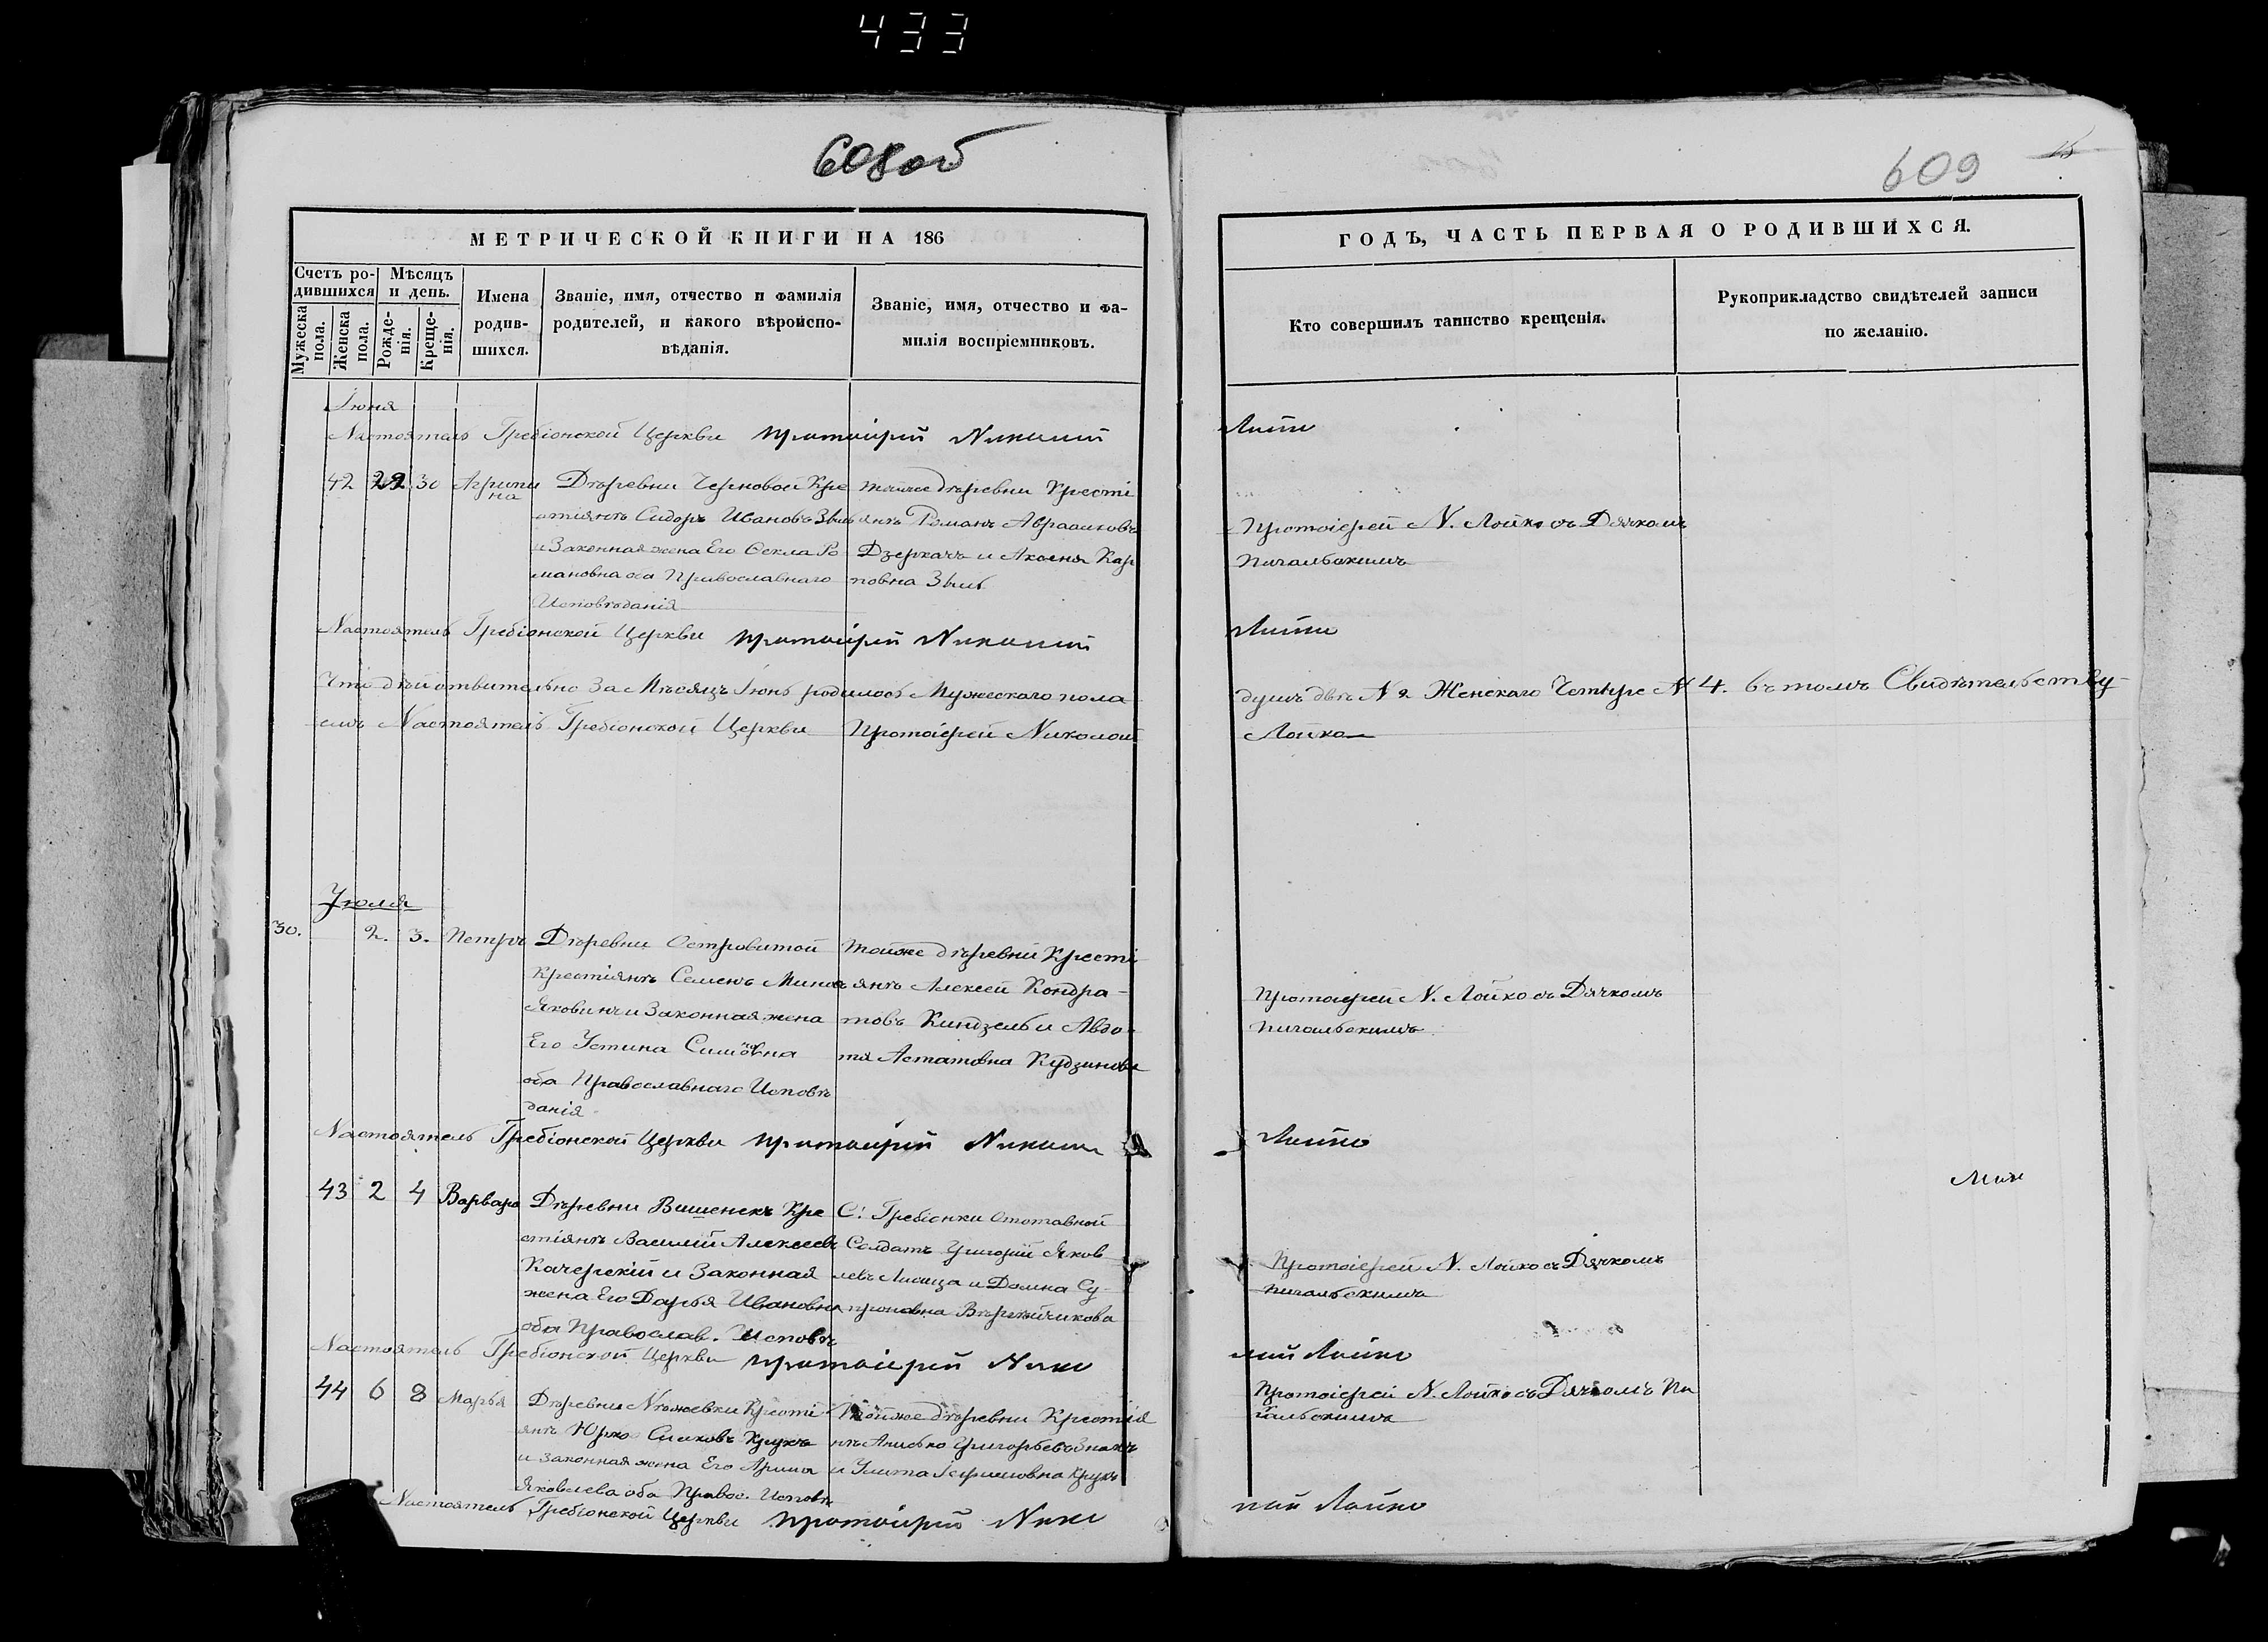 433
608об
609
15
МЕТРИЧЕСКОЙ КНИГИ НА 186
Счетъ родившихся
Мѣсяцъ и день.
Мужеска пола.
Женска пола.
Рожденія.
Крещенія.
Имена
родив-
шихся.
Званіе, имя, отчество и фамилія
родителей, и какого вѣроиспо-
вѣданія.
Званіе, имя, отчество и фа-
милія воспріемниковъ.
ГОДЪ, ЧАСТЬ ПЕРВАЯ О РОДИВШИХСЯ.
Кто совершилъ таинство крещенія.
Рукоприкладство свидѣтелей записи
по желанію.
Іюня
Настоятель Гребіонской Церкви протоіерей Николай
Лойко
42 29 30 Агрипи
на
Дѣревни Черновой Кре
стіянъ Сидоръ Ивановъ Змы
и Законная жена Его Өекла Ро
мановна оба Православнаго
Исповѣданія
тойже дѣревни Кресті
янъ Романъ Авраамовъ
Дзеркачъ и Аксеня Кар
повна
Протоіерей N. Лойко съ Дячкомъ
Пигальскимъ
Настоятель Гребіонской Церкви протоіерей Николай
Лойко
Что дѣйствительно За Мѣсяцъ Іюнь родилось Мужескаго пола
душъ двѣ N 2 Женскаго Четыре N 4. въ томъ Свидѣтельству-
емъ Настоятель Гребіонской Церкви Протоіерей Николай
Лойко
Уюля
30. 2. 3. Петръ
Дѣревни Островитой
Крестіянъ Семенъ
и Законная жена
Его Устина Симоновна
оба Православнаго Исповѣ
данія
тойже дѣревни Кресті
янъ Алексей Кондра-
товъ Киндзель и Авдо-
тя Астатовна
Протоіерей N. Лойко съ Дячкомъ
Пигальскимъ
Настоятель Гребіонской Церкви протоіерей Николай
Лойко
43 2 4 Варвара
Дѣревни Вишенекъ Кре
стіянъ Василій Алексеевъ
Качерскій и Законная
жена Его Дарья Ивановна
оба Православ. Исповѣ
С: Гребіонки Отставной
Солдатъ Григорій Яков
левъ Лисица и Домна Су-
проновна
Протоіерей N. Лойко съ Дячкомъ
Пигальскимъ
Настоятель Гребіонской Церкви протоіерей Нико
лай Лойко
44 6 8 Марья
Дѣревни Кресті
янъ Юрко Крукъ
и Законная жена Его Арина
Яковлева оба Правос. Исповѣ
тойже дѣревни Крестія
нъ Анисько Григорьевъ
и Улита Крукъ
Протоіерей N. Лойко съ Дячкомъ Пи
гальскимъ
Настоятель Гребіонской Церкви протоіерей Нико
лай Лойко